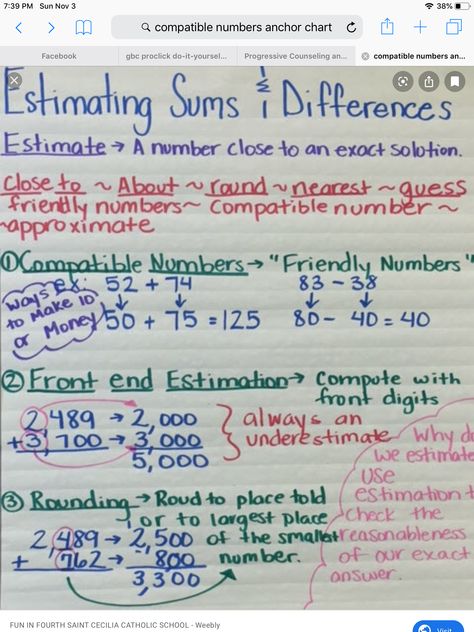 7:39 PM Sun Nov 3
38%
compatible numbers anchor chart
Facebook
gbc proclick do-it-yoursel...
Progressive Counseling an...
compatible numbers an...
Estimating Sums & Differences
Estimate → A number close to an exact solution.
Close to ~ About ~ round ~ nearest ~ guess
friendly numbers ~ Compatible number ~
~approximate
① Compatible Numbers → "Friendly Numbers"
Ways to Make 10 or Money
Ex: 52 + 74
50 + 75 = 125
83 - 38
80 - 40 = 40
② Front end Estimation → Compute with
front digits
2,489 → 2,000
+ 3,700 → 3,000
5,000
always an
underestimate
③ Rounding → Roud to place told
or to largest place
of the smallest
number.
2,489 → 2,500
+ 762 → 800
3,300
Why do
we estimate
Use
estimation t
check the
reasonableness
of our exact
answer.
FUN IN FOURTH SAINT CECILIA CATHOLIC SCHOOL - Weebly
Visit